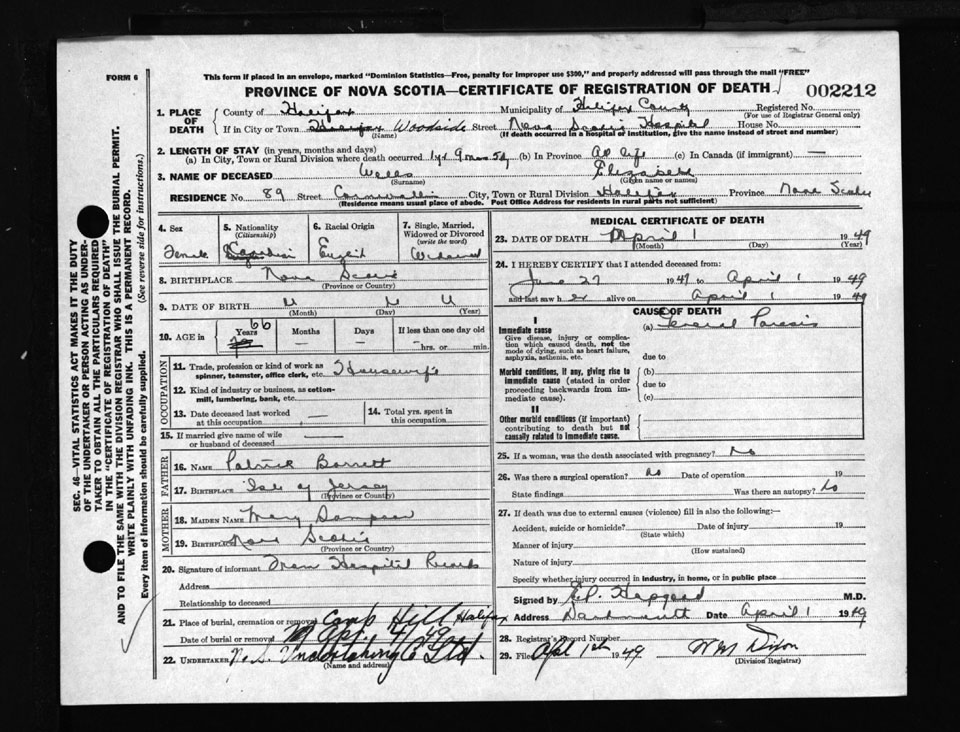 FORM 6
This form if placed in an envelope, marked "Dominion Statistics—Free, penalty for improper use $300," and properly addressed will pass through the mail "FREE"
PROVINCE OF NOVA SCOTIA—CERTIFICATE OF REGISTRATION OF DEATH
002212
1. PLACE OF DEATH
County of Halifax Municipality of Halifax County Registered No.
(For use of Registrar General only)
If in City or Town Woodside Street Nova Scotia Hospital House No.
(Name) (If death occurred in a hospital or institution, give the name instead of street and number)
2. LENGTH OF STAY (in years, months and days)
(a) In City, Town or Rural Division where death occurred 1 yr 9 mos 5 d (b) In Province All life (c) In Canada (if immigrant) —
3. NAME OF DECEASED Wells Elizabeth
(Surname) (Given name or names)
RESIDENCE No. 89 Street Cornwallis City, Town or Rural Division Halifax Province Nova Scotia
(Residence means usual place of abode. Post Office Address for residents in rural parts not sufficient)
4. Sex
Female
5. Nationality
(Citizenship)
Canadian
6. Racial Origin
English
7. Single, Married, Widowed or Divorced
(write the word)
Widowed
8. BIRTHPLACE Nova Scotia
(Province or Country)
9. DATE OF BIRTH U U U
(Month) (Day) (Year)
10. AGE in
Years 66
Months —
Days —
If less than one day old
— hrs. or — min.
OCCUPATION
11. Trade, profession or kind of work as spinner, teamster, office clerk, etc. Housewife
12. Kind of industry or business, as cotton-mill, lumbering, bank, etc.
13. Date deceased last worked at this occupation —
14. Total yrs. spent in this occupation —
15. If married give name of wife or husband of deceased —
FATHER
16. NAME Patrick Barrett
17. BIRTHPLACE Isle of Jersey
(Province or Country)
MOTHER
18. MAIDEN NAME Mary Sampson
19. BIRTHPLACE Nova Scotia
(Province or Country)
20. Signature of informant From Hospital Records
Address
Relationship to deceased
21. Place of burial, cremation or removal Camp Hill Halifax
Date of burial or removal Apr. 4/49
22. UNDERTAKER N.S. Undertaking Co Ltd.
(Name and address)
MEDICAL CERTIFICATE OF DEATH
23. DATE OF DEATH April 1 1949
(Month) (Day) (Year)
24. I HEREBY CERTIFY that I attended deceased from:
June 27 1947 to April 1 1949
and last saw her alive on April 1 1949
CAUSE OF DEATH
I
Immediate cause
(a) General Paresis
Give disease, injury or complication which caused death, not the mode of dying, such as heart failure, asphyxia, asthenia, etc.
due to
Morbid conditions, if any, giving rise to immediate cause (stated in order proceeding backwards from immediate cause).
(b)
due to
(c)
II
Other morbid conditions (if important) contributing to death but not causally related to immediate cause.
25. If a woman, was the death associated with pregnancy? No
26. Was there a surgical operation? No Date of operation 19
State findings Was there an autopsy? No
27. If death was due to external causes (violence) fill in also the following:—
Accident, suicide or homicide? Date of injury 19
(State which)
Manner of injury
(How sustained)
Nature of injury
Specify whether injury occurred in industry, in home, or in public place
Signed by M.D.
Address Dartmouth Date April 1 1949
28. Registrar's Record Number
29. Filed Apl 1st 1949 W M Dixon
(Division Registrar)
SEC. 46—VITAL STATISTICS ACT MAKES IT THE DUTY
OF THE UNDERTAKER OR PERSON ACTING AS UNDER-
TAKER TO OBTAIN ALL THE PARTICULARS REQUIRED
IN THE "CERTIFICATE OF REGISTRATION OF DEATH"
AND TO FILE THE SAME WITH THE DIVISION REGISTRAR WHO SHALL ISSUE THE BURIAL PERMIT.
WRITE PLAINLY WITH UNFADING INK. THIS IS A PERMANENT RECORD.
Every item of information should be carefully supplied. (See reverse side for instructions.)